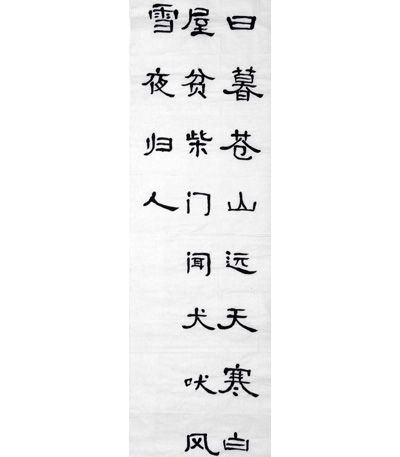 日暮苍山远天寒白
屋贫柴门闻犬吠风
雪夜归人